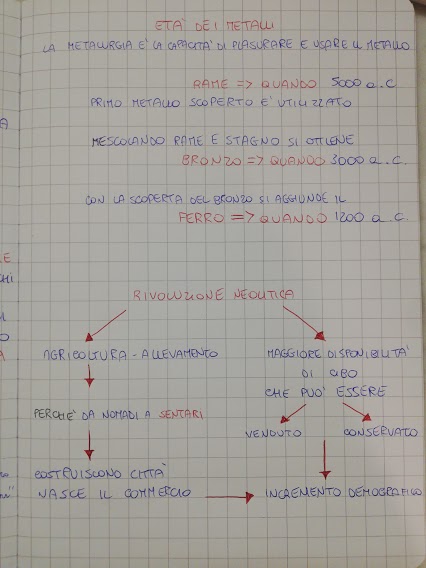 ETA' DEI METALLI
LA METALURGIA E' LA CAPACITA' DI PLASURARE E USARE IL METALLO
RAME => QUANDO 5000 a.C
PRIMO METALLO SCOPERTO E' UTILIZZATO
MESCOLANDO RAME E STAGNO SI OTTIENE
BRONZO => QUANDO 3000 a.C.
CON LA SCOPERTA DEL BRONZO SI AGGIUNDE IL
FERRO => QUANDO 1200 a C.
RIVOLUZIONE NEOLITICA
AGRICOLTURA - ALLEVAMENTO
MAGGIORE DISPONIBILITA'
DI CIBO
CHE PUO' ESSERE
PERCHE' DA NOMADI A SENTARI
VENDUTO
CONSERVATO
COSTRUISCONO CITTA'
NASCE IL COMMERCIO
INCREMENTO DEMOGRAFICO